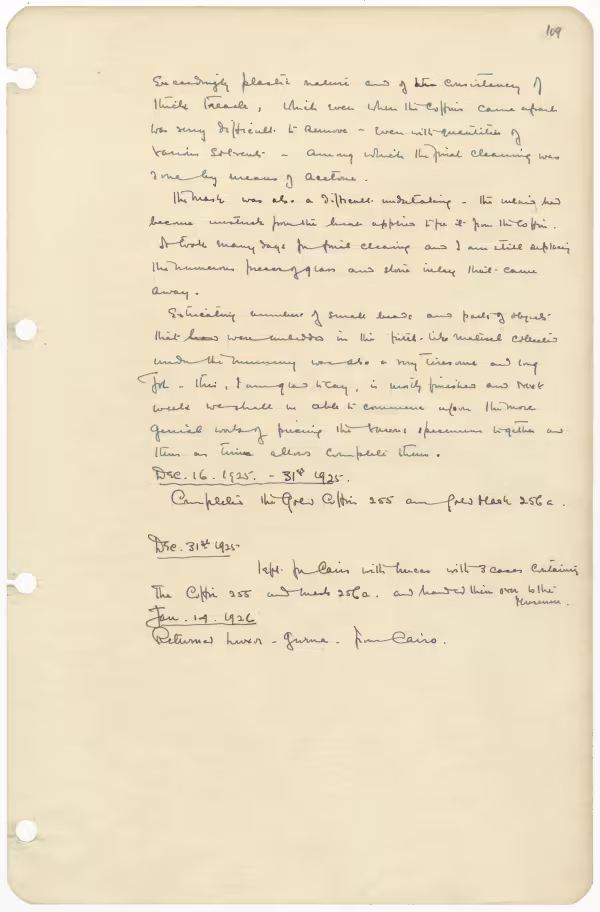 109
Exceedingly plastic nature and of the consistency of
thick treacle, which even when the Coffins came apart
was very difficult to remove - even with quantities of
various solvents - among which the final cleaning was
done by means of acetone.
The mask was also a difficult undertaking - the inlaying had
become unstuck from the heat applied to free it from the Coffin.
It took many days for final cleaning and I am still replacing
the numerous pieces of glass and stone inlay that came
away.
Extricating numbers of small beads and parts of objects
that were embedded in this pitch-like material collected
under the mummy was also a very tiresome and long
Job - this, I am glad to say, is mostly finished and next
week we shall be able to commence upon the more
genial work of piecing the various specimens together and
then as time allows complete them.
Dec. 16. 1925. - 31st 1925.
Completed the Gold Coffin 255 and Gold Mask 256a.
Dec. 31st 1925
Left for Cairo with Lucas with 3 cases containing
the Coffin 255 and mask 256a. and handed them over to the
Museum.
Jan. 19. 1926
Returned Luxor - Gurna - from Cairo.